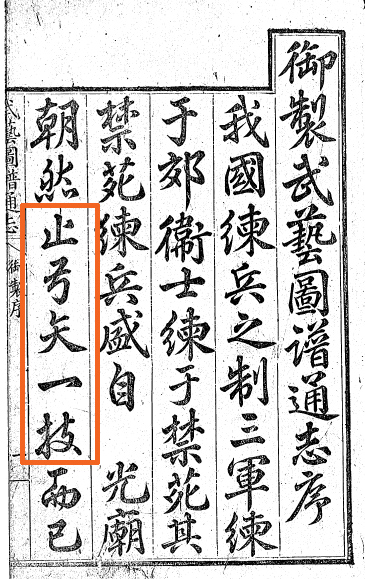 御製武藝圖譜通志序
我國練兵之制三軍練
于郊衞士練于禁苑其
禁苑練兵盛自 光廟
朝然止弓矢一技而已
武藝圖譜通志 御製序